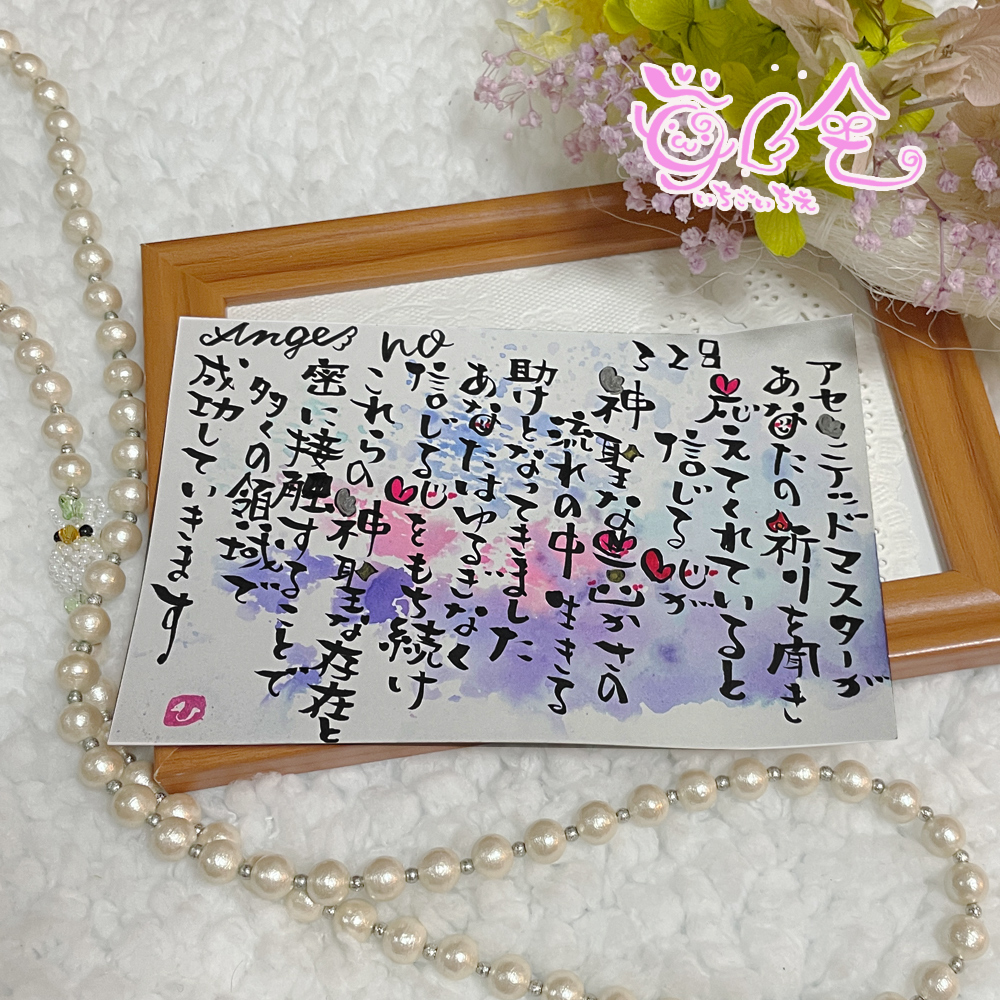 いちごいちえ
Angel no 328
アセンデッドマスターが
あなたの祈りを聞き
応えてくれていると
信じる心が
神聖な豊かさの
流れの中生きる
助けとなってきました
あなたはゆるぎなく
信じる心をもち続け
これらの神聖な存在と
密に接触することで
多くの領域で
成功していきます